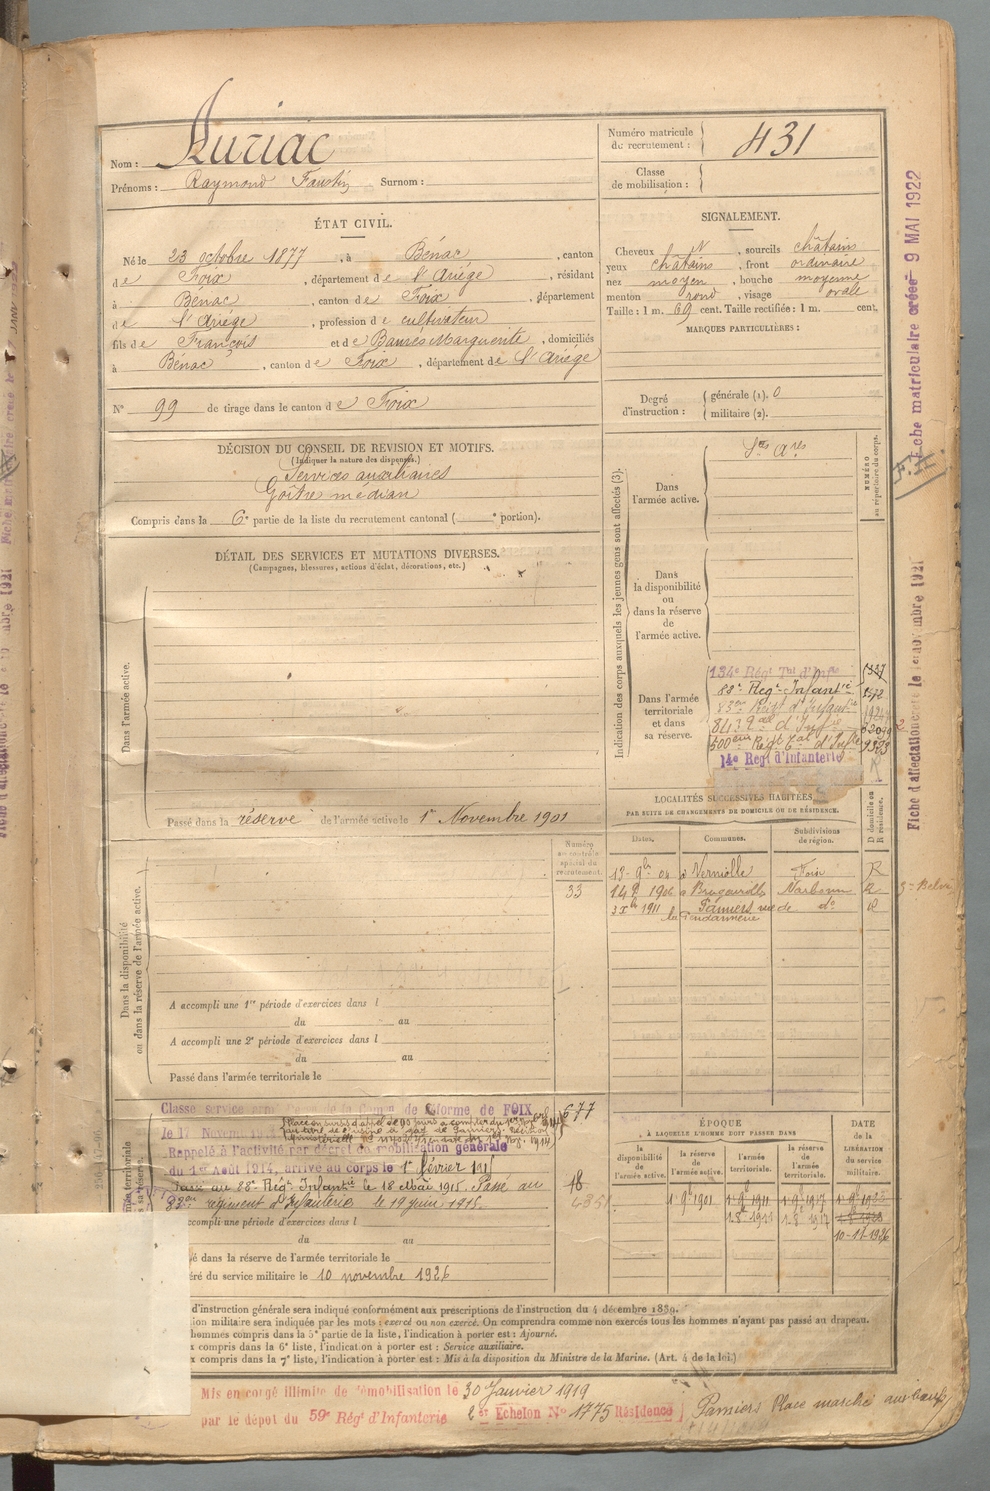 Nom : Auriac
Prénoms : Raymond Faustin Surnom :
Numéro matricule du recrutement : 431
Classe de mobilisation :
ÉTAT CIVIL.
Né le 23 octobre 1877, à Bénac, canton
de Foix, département de l'Ariège, résidant
à Bénac, canton de Foix, département
de l'Ariège, profession de cultivateur
fils de François et de Baurès Marguerite, domiciliés
à Bénac, canton de Foix, département de l'Ariège
N° 99 de tirage dans le canton de Foix
SIGNALEMENT.
Cheveux N, sourcils châtains
yeux châtains, front ordinaire
nez moyen, bouche moyenne
menton rond, visage ovale
Taille : 1 m. 69 cent. Taille rectifiée : 1 m. cent.
MARQUES PARTICULIÈRES :
Degré d'instruction : générale (1). 0
militaire (2).
DÉCISION DU CONSEIL DE REVISION ET MOTIFS.
(Indiquer la nature des dispenses.)
Services auxiliaires
Goître médian
Compris dans la 6e partie de la liste du recrutement cantonal ( e portion).
DÉTAIL DES SERVICES ET MUTATIONS DIVERSES.
(Campagnes, blessures, actions d'éclat, décorations, etc.)
Dans l'armée active.
Passé dans la réserve de l'armée active le 1er Novembre 1901
Indication des corps auxquels les jeunes gens sont affectés (3).
NUMÉRO au répertoire du corps.
Dans l'armée active.
Dans la disponibilité ou dans la réserve de l'armée active.
Dans l'armée territoriale et dans sa réserve.
134e Régt Tal d'Infie
88e Régt Infanterie
83me Régt d'Infanterie
500ème Régt Tal d'Inftie
14e Régt d'Infanterie
LOCALITÉS SUCCESSIVES HABITÉES
PAR SUITE DE CHANGEMENTS DE DOMICILE OU DE RÉSIDENCE.
D domicile ou R résidence.
Dates. Communes. Subdivisions de région.
13-9b 04 à Verniolle Foix R
1906 Narbonne R
3 Xb 1911 Pamiers rue de la Gendarmerie do R
Numéro au contrôle spécial du recrutement.
33
Dans la disponibilité ou dans la réserve de l'armée active.
A accompli une 1re période d'exercices dans l
du au
A accompli une 2e période d'exercices dans l
du au
Passé dans l'armée territoriale le
Classe service armé de la Comm de Réforme de FOIX
le 17 Novem
677
Rappelé à l'activité par décret de mobilisation générale
du 1er Août 1914, arrivé au corps le 1er février 1915
Passé au 88e Régt Infanterie le 18 Mai 1915. Passé au
83me régiment d'Infanterie le 19 juin 1915.
ccompli une période d'exercices dans l
du au
é dans la réserve de l'armée territoriale le
éré du service militaire le 10 novembre 1926
ÉPOQUE
À LAQUELLE L'HOMME DOIT PASSER DANS
la disponibilité de l'armée active. la réserve de l'armée active. l'armée territoriale. la réserve de l'armée territoriale.
DATE de la LIBÉRATION du service militaire.
1-9b 1901 1-9b 1911 1-9b 1917
10-11-1926
d'instruction générale sera indiqué conformément aux prescriptions de l'instruction du 4 décembre 1889.
ion militaire sera indiquée par les mots : exercé ou non exercé. On comprendra comme non exercés tous les hommes n'ayant pas passé au drapeau.
hommes compris dans la 5e partie de la liste, l'indication à porter est : Ajourné.
x compris dans la 6e liste, l'indication à porter est : Service auxiliaire.
x compris dans la 7e liste, l'indication à porter est : Mis à la disposition du Ministre de la Marine. (Art. 4 de la loi.)
Mis en congé illimité de démobilisation le 30 Janvier 1919
par le dépôt du 59e Régt d'Infanterie 2e Echelon N° 1775 Résidence Pamiers Place marché aux bœufs
Fiche matriculaire créée 9 MAI 1922
Fiche d'affectation créée le novembre 1921